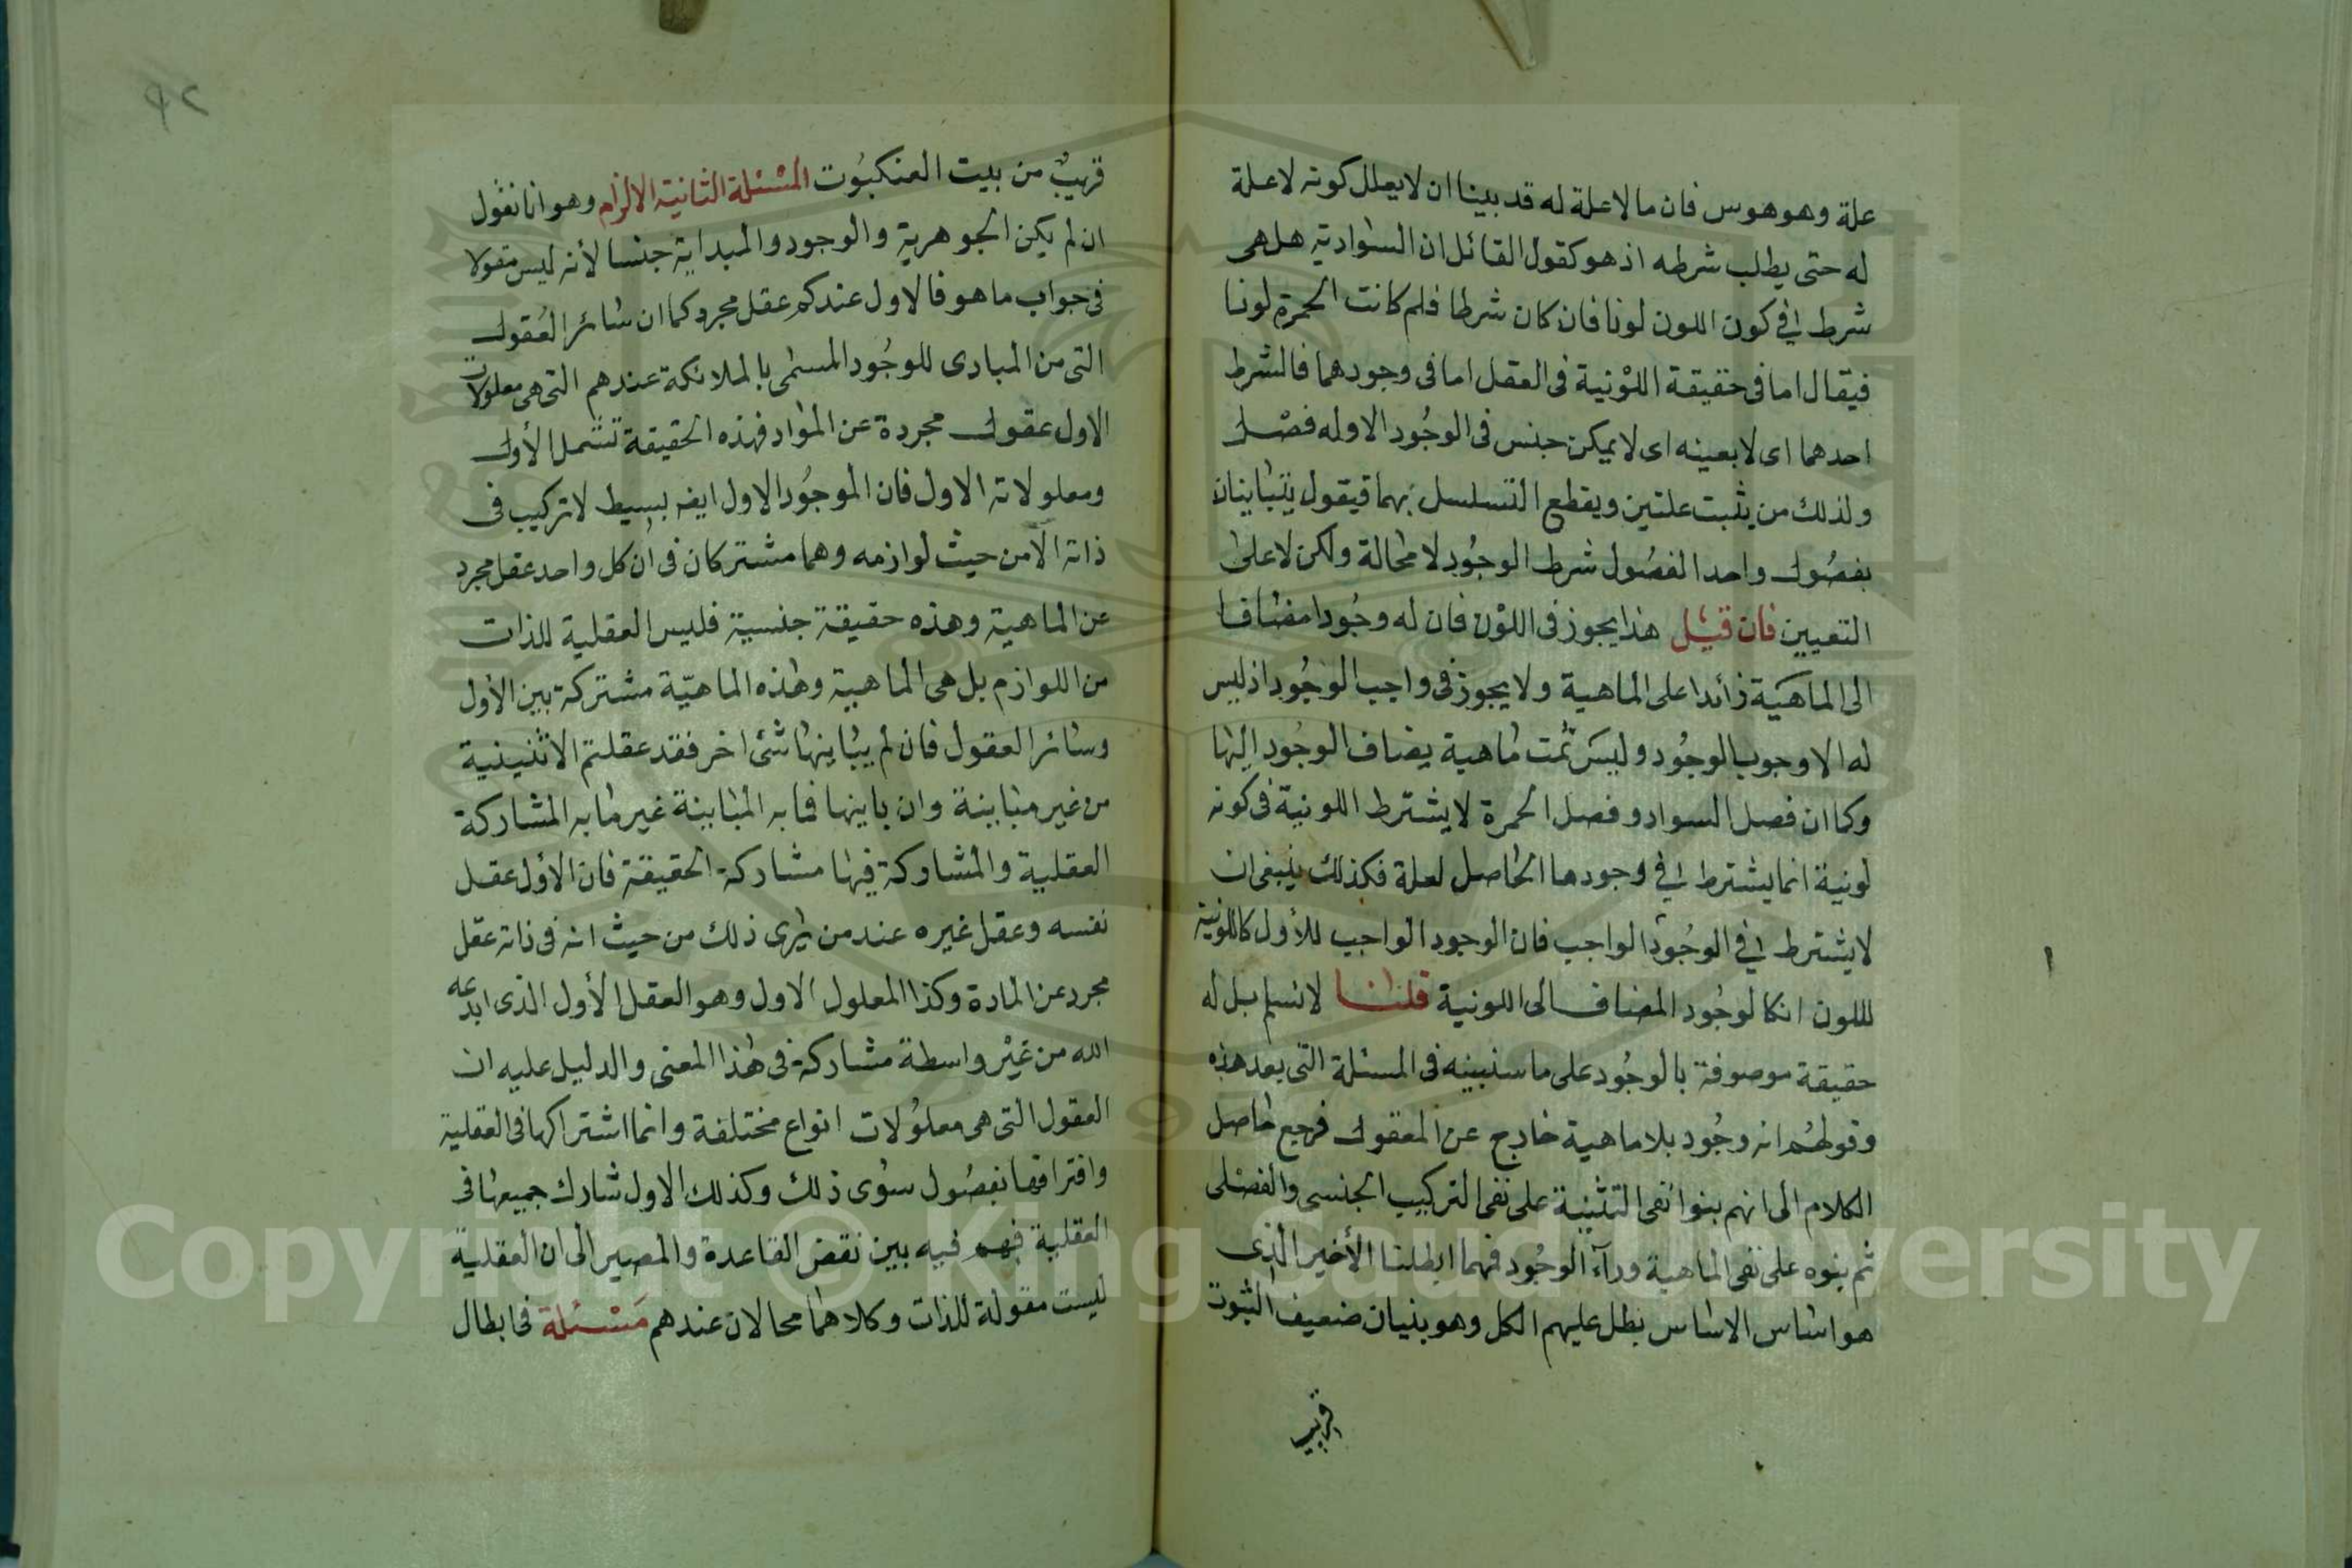 علة وهو هوس فان مالا علة له قد بينا ان لا يعلل كونه لا علة
له حتى يطلب شرطه اذ هو كقول القائل ان السوادية هل هى
شرط فى كون اللون لونا فان كان شرطا فلم كانت الحمرة لونا
فيقال اما فى حقيقة اللونية فى العقل اما فى وجودهما فالشرط
احدهما اى لا بعينه اى لا يمكن جنس فى الوجود الا وله فصل
ولذلك من يثبت علتين ويقطع التسلسل بهما فيقول يتباينان
بفصول واحد الفصول شرط الوجود لا محالة ولكن لا على
التعيين فان قيل هذا يجوز فى اللون فان له وجودا مضافا
الى الماهية زائدا على الماهية ولا يجوز فى واجب الوجود اذ ليس
له الا وجوب الوجود وليس ثمت ماهية يضاف الوجود اليها
وكما ان فصل السواد وفصل الحمرة لا يشترط اللونية فى كونه
لونية انما يشترط فى وجودها الحاصل لعلة فكذلك ينبغى ان
لا يشترط فى الوجود الواجب فان الوجود الواجب للأول كاللونية
لللون انكالوجود المضاف الى اللونية قلنا لا نسلم بل له
حقيقة موصوفة بالوجود على ما سنبينه فى المسئلة التى بعد هذه
وقولهم انه وجود بلا ماهية خارج عن المعقول فرجع حاصل
الكلام الى انهم بنوا نفى التثنية على نفى التركيب الجنسى والفصلى
ثم بنوه على نفى الماهية ورآء الوجود فهما ابطلنا الأخير الذى
هو اساس الاساس بطل عليهم الكل وهو بنيان ضعيف الثبوت
قريب
٩٢
قريب من بيت العنكبوت المسئلة الثانية الالزام وهو انا نقول
ان لم يكن الجوهرية والوجود والمبداية جنسا لأنه ليس مقولا
فى جواب ما هو فالاول عندكم عقل مجرد كما ان سائر العقول
التى من المبادى للوجود المسمى بالملائكة عندهم التى هى معلولات
الاول عقول مجردة عن المواد فهذه الحقيقة تشمل الأول
ومعلولاته الاول فان الموجود الاول ايضه بسيط لا تركيب فى
ذاته الا من حيث لوازمه وهما مشتركان فى ان كل واحد عقل مجرد
عن الماهية وهذه حقيقة جنسية فليس العقلية للذات
من اللوازم بل هى الماهية وهذه الماهية مشتركة بين الأول
وسائر العقول فان لم يباينها شئ اخر فقد عقلتم الاثنينية
من غير مباينة وان باينها فما به المباينة غير ما به المشاركة
العقلية والمشاركة فيها مشاركة الحقيقة فان الأول عقل
نفسه وعقل غيره عند من يرى ذلك من حيث انه فى ذاته عقل
مجرد عن المادة وكذا المعلول الاول وهو العقل الأول الذى ابدعه
الله من غير واسطة مشاركة فى هذا المعنى والدليل عليه ان
العقول التى هى معلولات انواع مختلفة وانما اشتراكها فى العقلية
وافتراقها بفصول سوى ذلك وكذلك الاول شارك جميعها فى
العقلية فهم فيه بين نقض القاعدة والمصير الى ان العقلية
ليست مقولة للذات وكلاهما محالان عندهم مسئلة فى ابطال
Copyright © King Saud University